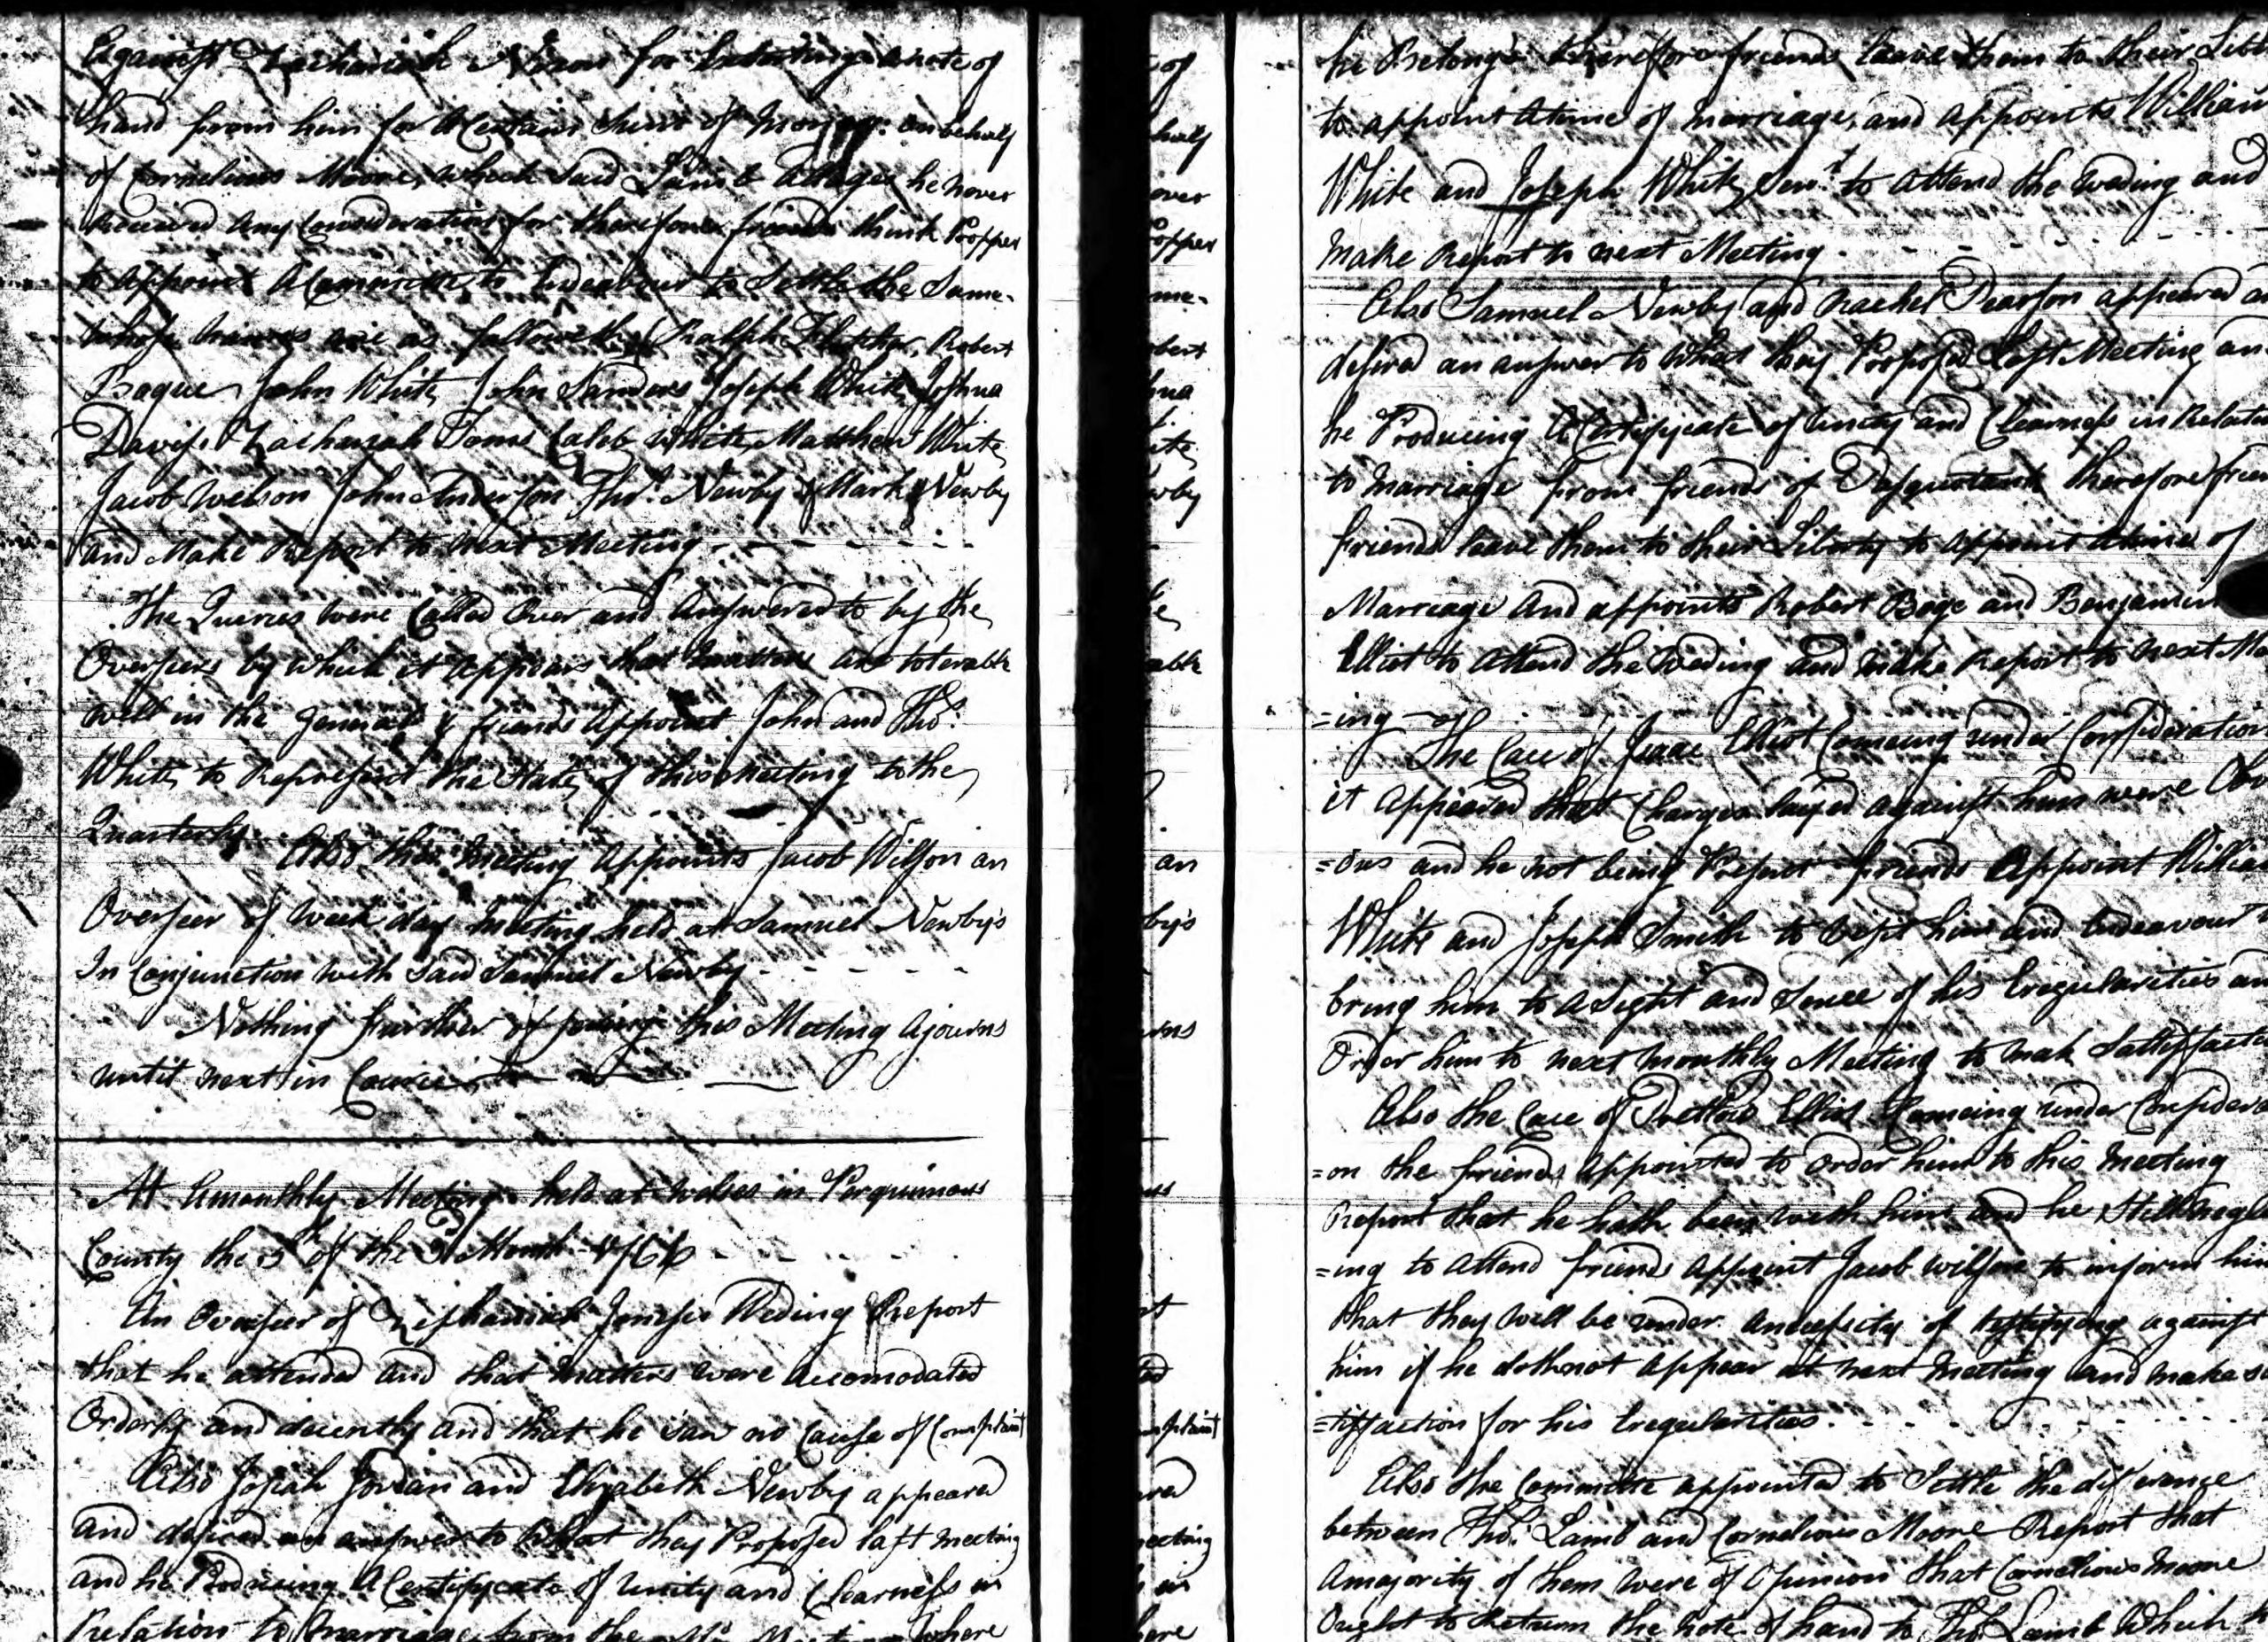 Against Zachariah Nixon for Extorting a note of
hand from him for a Certain Sum of Money on behalf
of Cornelious Moore, which Said Lamb Alleges he never
Received Any Consideration for therefore friends think Propper
to Appoint A Committe to Endeabour to Settle the Same.
whose names are as followeth Ralph Fletcher, Robert
Bogue John White John Sanders Joseph White Joshua
Davis Zachariah Toms Caleb White Matthew White
Jacob Welson John Anderson Thos. Newby & Mark Newby
and Make Report to Next Meeting
The Queries were Called Over and Answered to by the
Overseers by which it Appears that matters are tolerable
well in the General & friends Appoint John and Thos.
White to Represent the State of this Meeting to the
Quarterly. Also this meeting Appoints Jacob Wilson an
Overseer of Week day Meeting held at Samuel Newby's
In Conjunction with Said Samuel Newby
Nothing further this Meeting Ajourns
until next in Course
At A monthly Meeting held at Welses in Perquimons
County the 5th of the 3 Month
An Overseer of Zephaniah Weding Report
that he attended and that matters were Accomodated
Orderly and decently and that he saw no Cause of Complaint
Also Josiah Jordan and Elizabeth Newby appeared
and desired an answer to What they Proposed last meeting
and he Producing A Certifycate of Unity and Clearness in
Relation to Marriage from the Mo. Meeting where
he Belongs therefore friends leave them to their
to appoint A time of Marriage, and Appoints William
White and Joseph White Senr. to Attend the Weding and
make Report to next Meeting.
Also Samuel Newby and Rachel Pearson appeared
desired an answer to what they Proposed Last Meeting
he Producing A Certifycate of Unity and Clearness in
to Marriage from friends of Pasquotank therefore
friends leave them to their Liberty to Appoint A time of
Marriage And appoints Robert Boge and Benjamin
Elliot to Attend the Weding and make Report to next
=ing
The Case of Isaac Elliot Comeing under Consideration
it Appeared that Charges layed against him were
=ous and he not being Present friends Appoint
White and Joseph Smith to Visit him and Endeavour
bring him to a Sight and Sence of his Eregularities
Order him to next monthly Meeting to mak
Also the Case of Elliot Comeing under
=on the friend Appointed to Order him to this Meeting
Report that he hath been with him and he Still
=ing to Attend friends Appoint Jacob Wilson to inform him
that they Will be under A necessity of testifying against
him if he doth not Appear at next Meeting and make
=tisfaction for his Eregularities.
Also the Committe appointed to Settle the diferance
between Thos. Lamb and Cornelious Moore Report that
A majority of them were of Opinion that Cornelious Moore
Ought to Return the note of hand to Thos. Lamb Which